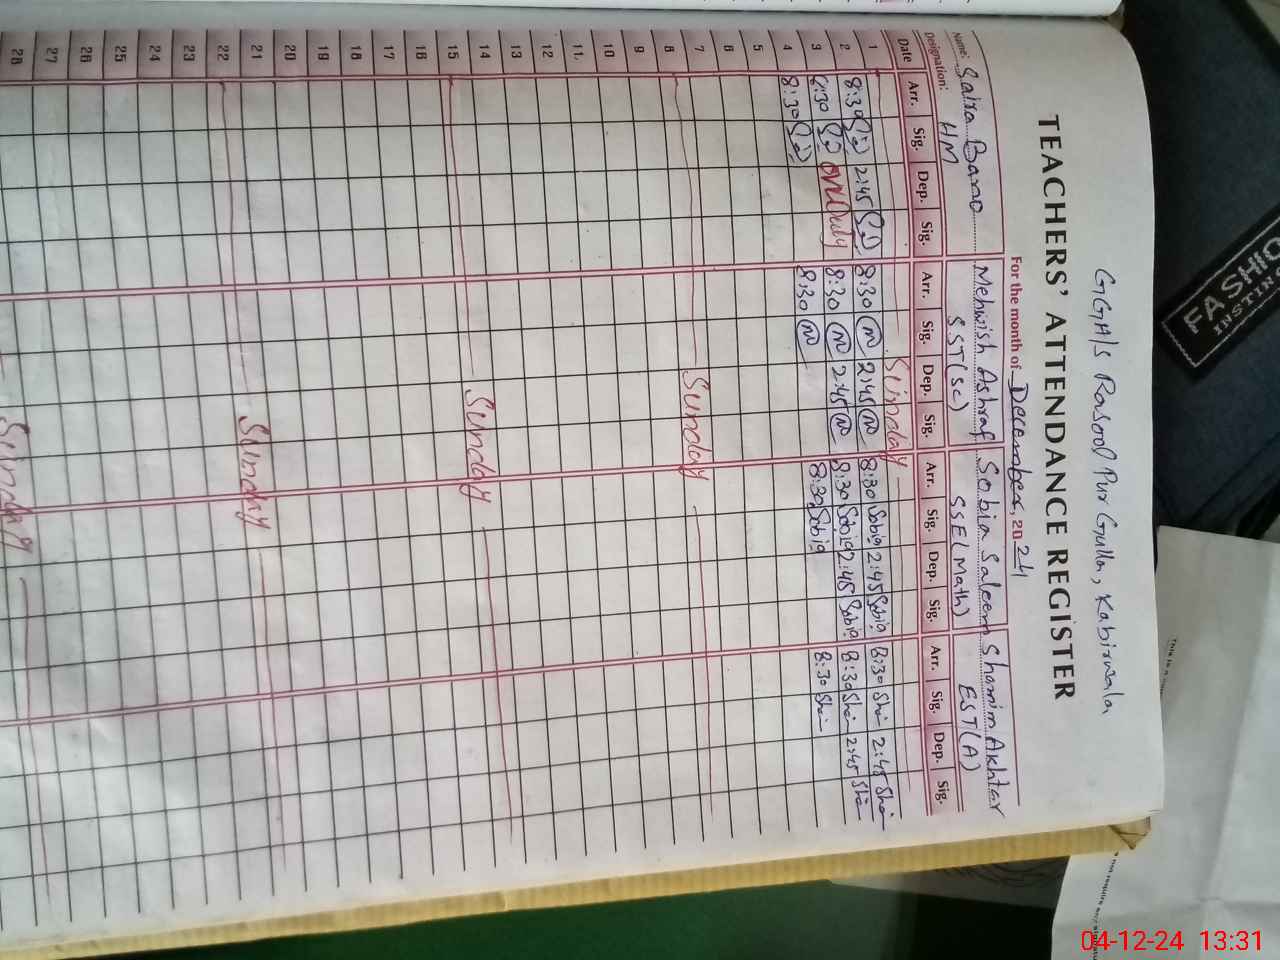 GGH/S Rasool Pur Gulla, Kabirwala
TEACHERS' ATTENDANCE REGISTER
For the month of December, 2024
Name: Saira Bano Mehwish Ashraf Sobia Saleem Shamim Akhtar
Designation: HM SST(SC) SSE(Math) EST(A)
Date Arr. Sig. Dep. Sig. Arr. Sig. Dep. Sig. Arr. Sig. Dep. Sig. Arr. Sig. Dep. Sig.
1 Sunday
2 8:30 2:45 8:30 M 2:45 M 8:30 Sobia 2:45 Sobia 8:30 Sha 2:45 Sha
3 8:30 On Duty 8:30 M 2:45 M 8:30 Sobia 2:45 Sobia 8:30 Sha 2:45 Sha
4 8:30 8:30 M 8:30 Sobia 8:30 Sha
5
6
7
8 Sunday
9
10
11.
12
13
14
15 Sunday
16
17
18
19
20
21
22 Sunday
23
24
25
26
27
28 Sunday
FASHIO
INSTIN
This is a
not require any
04-12-24 13:31